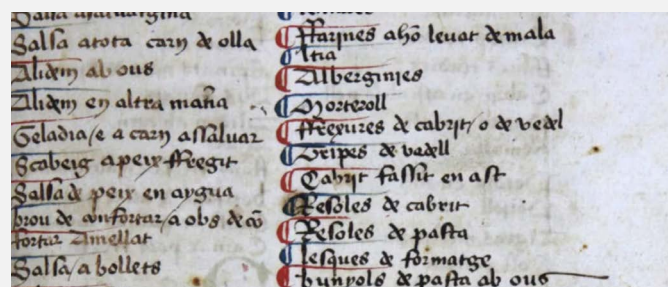 Salsa atota carn de olla
Alidem ab ous
Alidem en altra maña
Geladia/e a carn assaluar
Scabeig a peix ffregit
Salsa de peix en aygua
brou de confortar/a obs de cō
fortar Amellat
Salsa/a bollets
ffarines a hō levat de mala
ltia
Alberginies
Morteroll
ffrexures de cabrit/o de vedel
Tripes de vedell
Cabrit fassit en ast
Resoles de cabrit
Resoles de pasta
lesques de formatge
bunyols de pasta ab ous